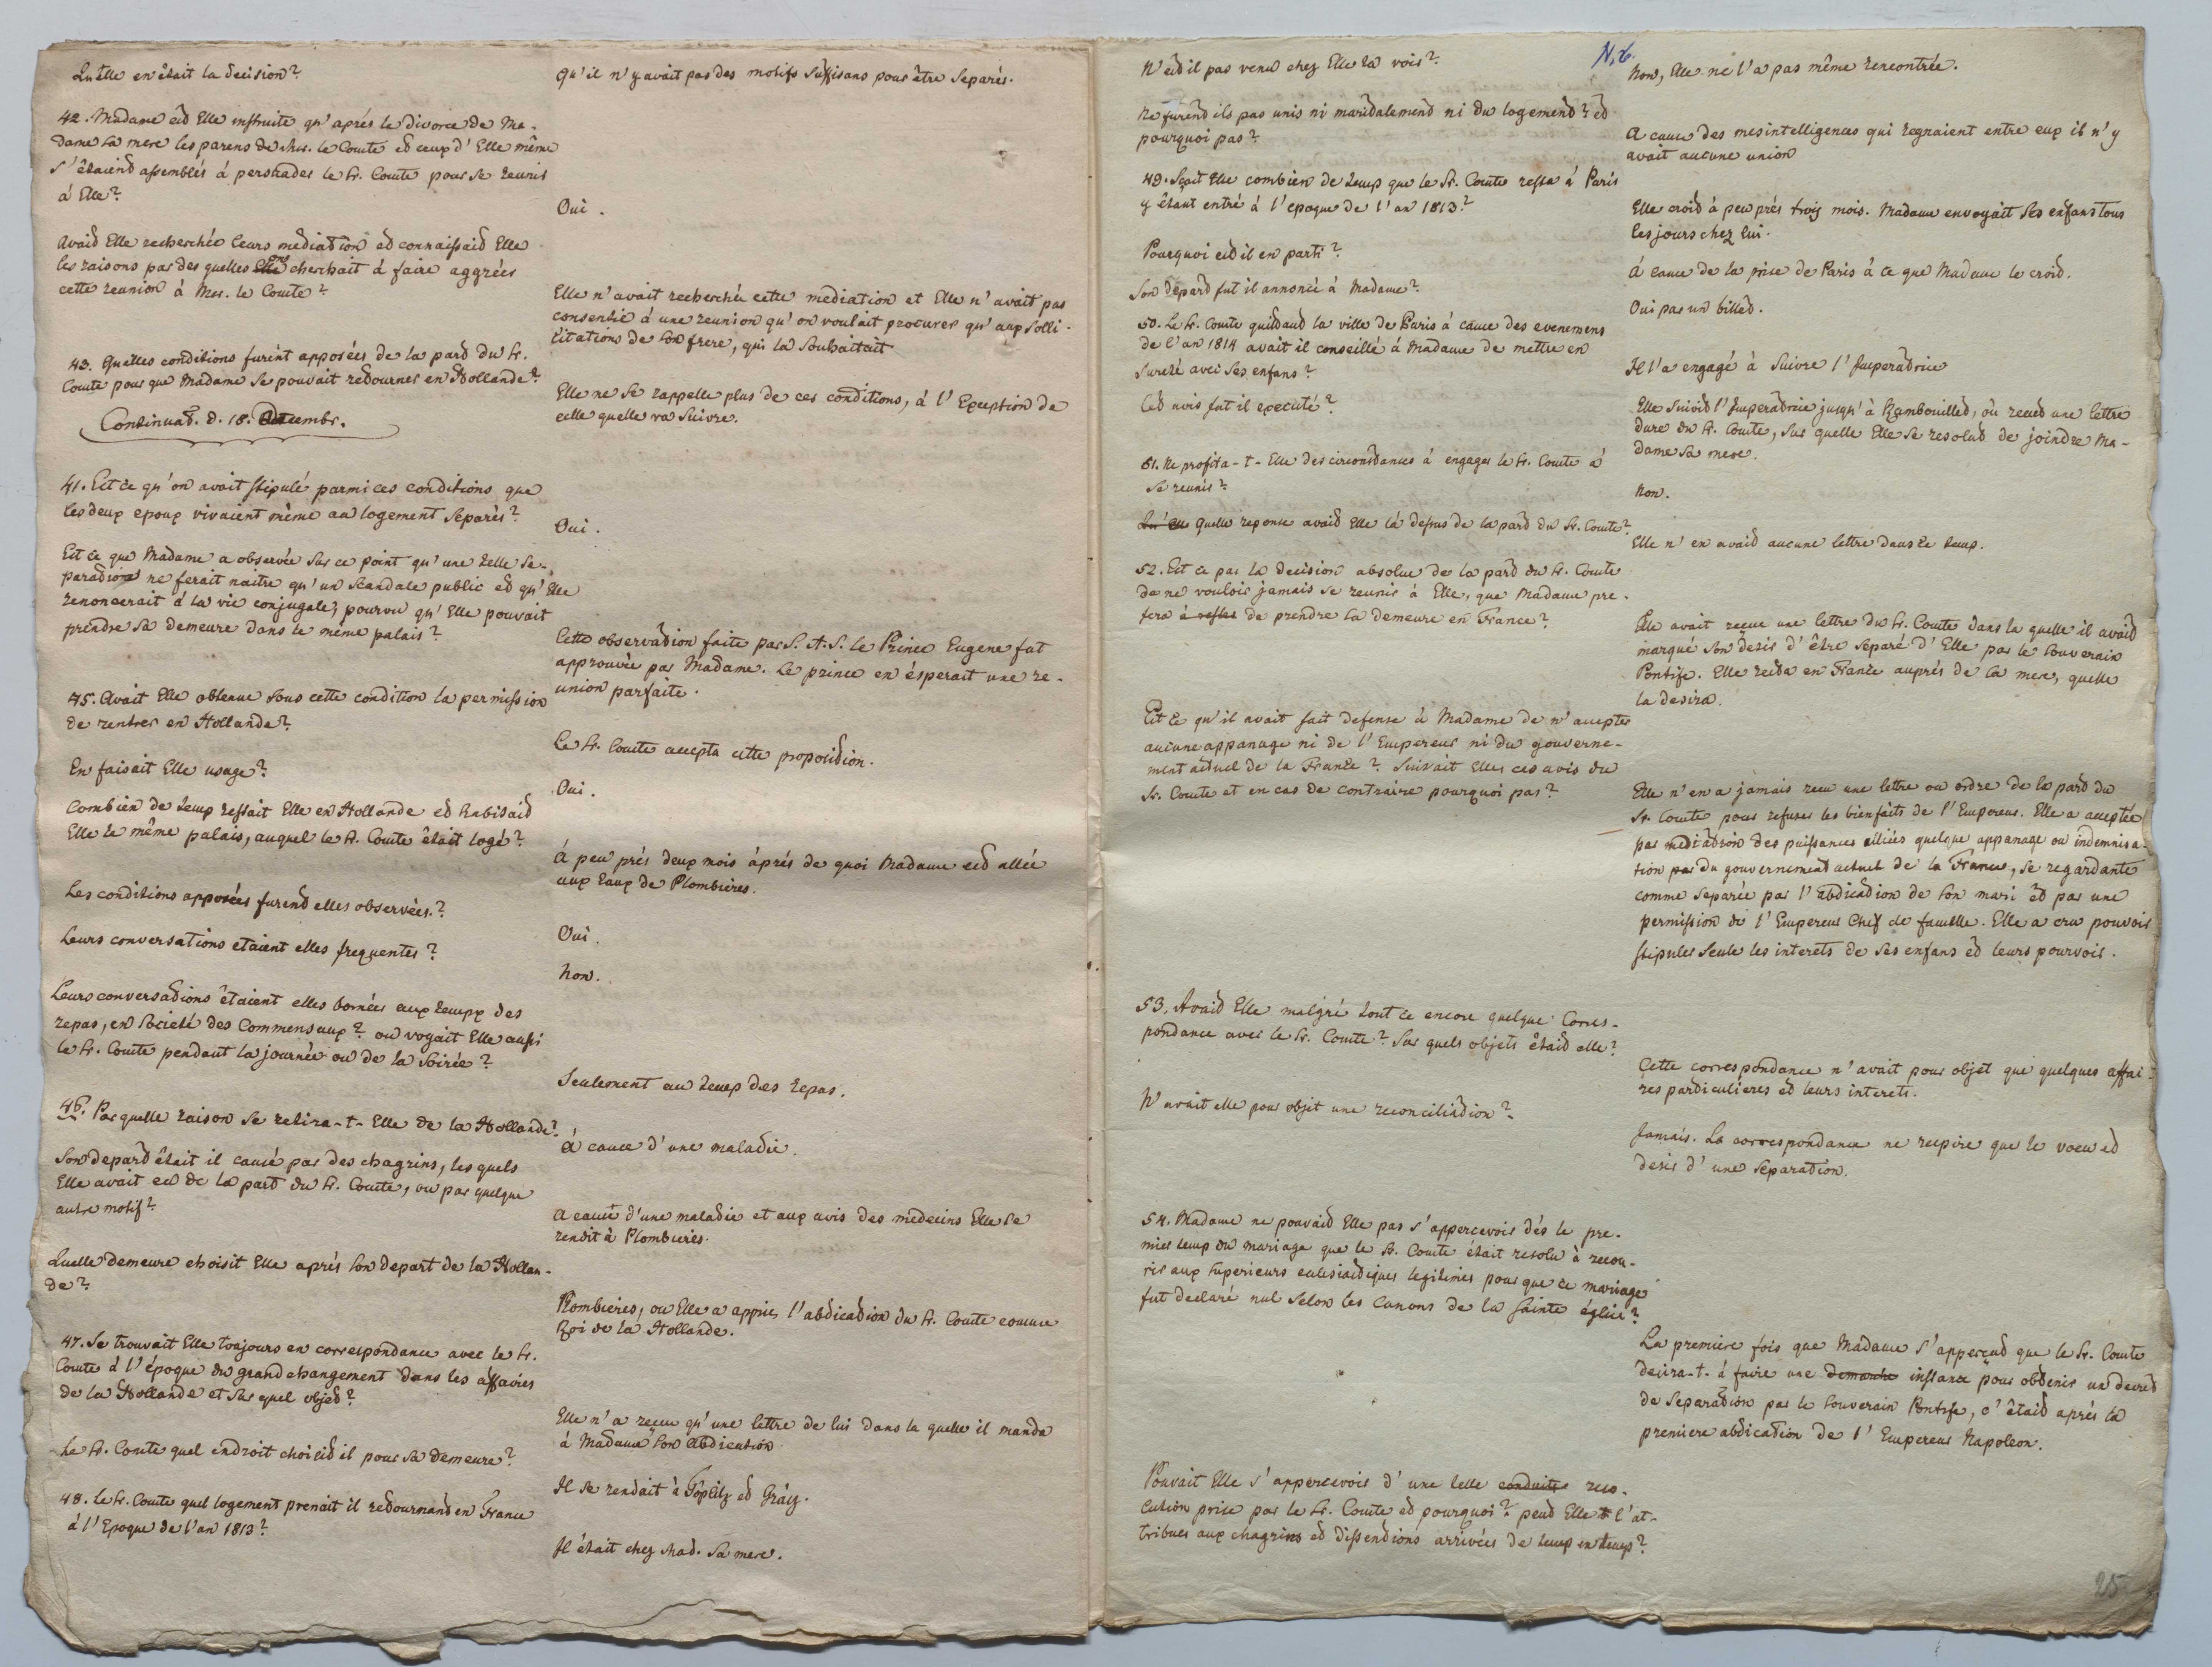 Qu'elle en était la decision?
Qu'il n'y avait pas des motifs suffisans pour être separés.
42. Madame est Elle instruite qu'aprés le divorce de Ma-
dame sa mere les parens de Mr. le Comte et ceux d'Elle même
s'étaient assemblés á persuader le Sr. Comte pour se reunir
á Elle?
Oui.
Avait Elle recherchée leurs mediation et connaissait Elle
les raisons par des quelles cherchait á faire aggréer
cette reunion á Mr. le Comte?
Elle n'avait recherchée cette mediation et Elle n'avait pas
consentie á une reunion qu'on voulait procurer qu'aux solli-
citations de son frere, qui la souhaitait
43. Quelles conditions furent apposées de la part du Sr.
Comte pour que Madame se pouvait retourner en Hollande?
Elle ne se rappelle plus de ces conditions, á l'Exception de
celle quelle va suivre.
Continuat. d. 18. Decembr.
41. Est ce qu'on avait stipulé parmi ces conditions que
les deux epoux vivaient même au logement separés?
Oui.
Est ce que Madame a observée sur ce point qu'une telle se-
paration ne ferait naitre qu'un scandale public et qu'Elle
renoncerait á la vie conjugale, pourvu qu'Elle pouvait
prendre sa demeure dans le même palais?
Cette observation faite par S. A. S. le Prince Eugene fut
approuvée par Madame. Le prince en ésperait une re-
union parfaite.
45. Avait Elle obtenue sous cette condition la permission
de rentrer en Hollande?
Le Sr. Comte accepta cette proposition.
En faisait Elle usage?
Oui.
Combien de temp restait Elle en Hollande et habitait
Elle le même palais, auquel le Sr. Comte était logé?
á peu prés deux mois áprés de quoi Madame est allée
aux eaux de Plombieres.
Les conditions apposées furent elles observées?
Oui.
Leurs conversations etaient elles frequentes?
Non.
Leurs conversations êtaient elles bornées aux temps des
repas, en Societé des Commensaux? ou voyait Elle aussi
le Sr. Comte pendant la journée ou de la soirée?
Seulement au temp des repas.
46. Par quelle raison se retira-t-Elle de la Hollande?
á cause d'une maladie.
Son depart était il causé par des chagrins, les quels
Elle avait eu de la part du Sr. Comte, ou par quelque
autre motif?
a cause d'une maladie et aux avis des medecins Elle se
rendit à Plombieres.
Quelle demeure choisit Elle aprés son depart de la Hollan-
de?
Plombieres, ou Elle a appris l'abdication du Sr. Comte comme
Roi de la Hollande.
47. Se trouvait Elle toujours en correspondance avec le Sr.
Comte á l'époque du grand changement dans les affaires
de la Hollande et sur quel objet?
Elle n'a reçue qu'une lettre de lui dans la quelle il manda
à Madame son abdication.
Le Sr. Comte quel endroit choisit il pour sa demeure?
Il se rendait à Töplitz et Grätz.
48. Le Sr. Comte quel logement prenait il retournant en France
á l'Epoque de l'an 1813?
Il était chez Mad. sa mere.
N. 6.
N'est il pas venu chez Elle la voir?
Non, Elle ne l'a pas même rencontrée.
Ne furent ils pas unis ni maritalement ni du logement? et
pourquoi pas?
a cause des mesintelligences qui regnaient entre eux il n'y
avait aucune union
49. Sçait Elle combien de temp que le Sr. Comte resta á Paris
y étant entré á l'epoque de l'an 1813?
Elle croit à peu prés trois mois. Madame envoyait ses enfans tous
les jours chez lui.
Pourquoi est il en parti?
á cause de la prise de Paris à ce que Madame le croit.
Son départ fut il annoncé á Madame?
Oui par un billet.
50. Le Sr. Comte quittant la ville de Paris á cause des evenemens
de l'an 1814 avait il conseillé á Madame de mettre en
sureté avec ses enfans?
Il l'a engagé à suivre l'Imperatrice
Cet avis fut il executé?
Elle suivit l'Imperatrice jusqu'à Rambouillet, où recut une lettre
dure du Sr. Comte, sur quelle Elle se resolut de joindre Ma-
dame sa mere.
51. Ne profita-t-Elle des circonstances á engager le Sr. Comte á
se reunir?
Non.
Qu'elle quelle reponse avait Elle lá dessus de la part du Sr. Comte?
Elle n'en avait aucune lettre dans ce temp.
52. Est ce par la decision absolue de la part du Sr. Comte
de ne vouloir jamais se reunir à Elle, que Madame pre-
fera á rester de prendre la demeure en France?
Elle avait reçue une lettre du Sr. Comte dans la quelle il avait
marqué son desir d'être separé d'Elle par le Souverain
Pontife. Elle resta en France auprés de la mere, quelle
la desira.
Est ce qu'il avait fait defense à Madame de n'accepter
aucune appanage ni de l'Empereur ni du gouverne-
ment actuel de la France? Suivait Elle ces avis du
Sr. Comte et en cas de contraire pourquoi pas?
Elle n'en a jamais recu une lettre ou ordre de la part du
Sr. Comte pour refuser les bienfaits de l'Empereur. Elle a acceptée
par mediation des puissances alliées quelque appanage ou indemnisa-
tion par du gouvernement actuel de la France, se regardante
comme separée par l'abdication de son mari et par une
permission de l'Empereur Chef de famille. Elle a cru pouvoir
stipuler seule les interets de ses enfans et leurs pourvoir.
53. Avait Elle malgré tout ce encore quelque Corres-
pondance avec le Sr. Comte? Sur quels objets était elle?
Cette correspondance n'avait pour objet que quelques affai-
res particulieres et leurs interets.
N'avait elle pour objet une reconciliation?
Jamais. La correspondance ne respire que le voeu et
desir d'une separation.
54. Madame ne pouvait Elle pas s'appercevoir dés le pre-
mier temp du mariage que le Sr. Comte était resolu à recou-
rir aux superieurs eclesiastiques legitimes pour que ce mariage
fut declaré nul selon les Canons de la sainte église?
La premiere fois que Madame s'apperçut que le Sr. Comte
desira-t-á faire une demande instance pour obtenir un decret
de separation par le Souverain Pontife, c'était aprés la
premiere abdication de l'Empereur Napoleon.
Pouvait Elle s'appercevoir d'une telle conduite reso-
lution prise par le Sr. Comte et pourquoi? peut Elle l'at-
tribuer aux chagrins et dissentions arrivées de temp en temp?
25